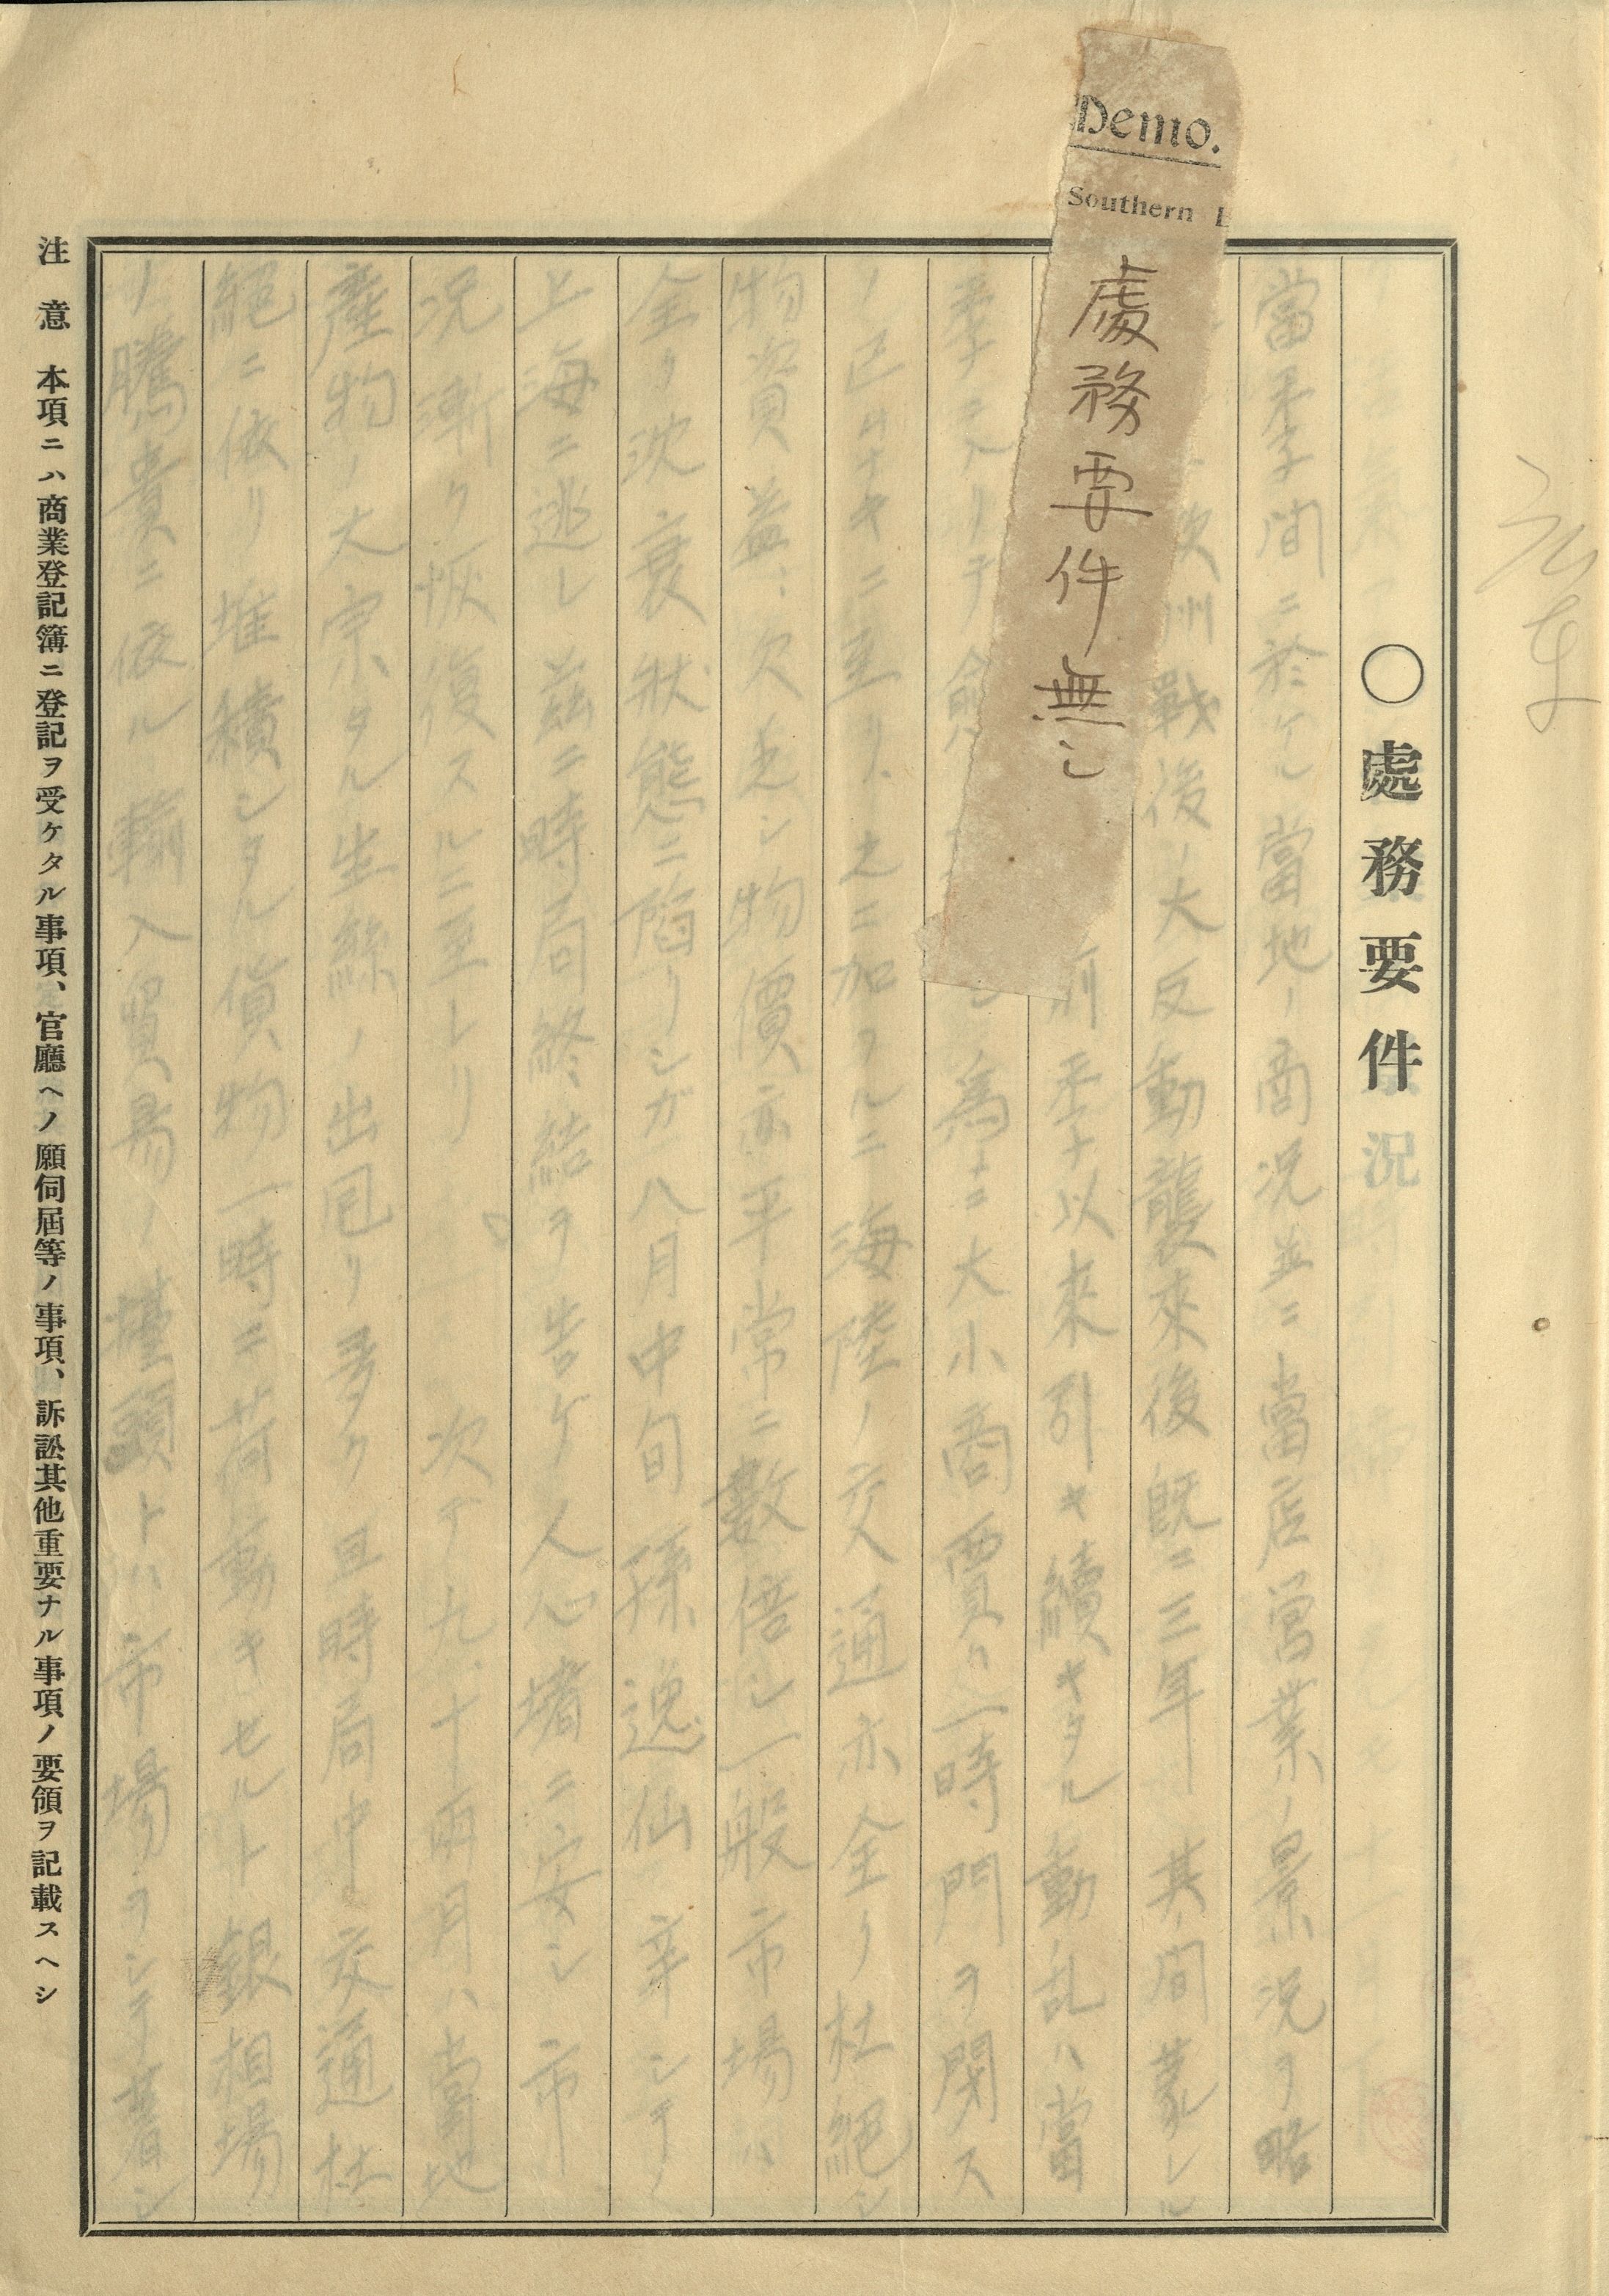 Demo.
Southern
處務要件無シ
○處務要件
當季間ニ於ケル當地ノ商況並ニ當店営業ノ景況ヲ略
次洲戰後ノ大反動襲來後既ニ三年其間蒙レル
前季以來引キ續キタル動乱ハ當
季ニ入リテ愈 為ニ大小商賈ハ一時門ヲ閉ス
ノ已ムナキニ至リ、之ニ加フルニ海陸ノ交通亦全ク杜絕シ
物資益々欠乏シ物價亦平常ニ數倍シ一般市場ハ
全ク沈衰狀態ニ陷リシガ八月中旬孫逸仙ノ辛シテ
上海ニ逃レ茲ニ時局終結ヲ告ケ人心堵ニ安シ市
況漸ク恢復スルニ至レリ 次テ九、十両月ハ當地
產物ノ大宗タル生絲ノ出回リ多ク且時局中交通杜
絕ニ依リ堆積シタル貨物一時ニ荷動キセルト銀相場
ノ騰貴ニ依ル輸入貿易ノ擡頭トハ市場ヲシテ著シ
注意 本項ニハ商業登記簿ニ登記ヲ受ケタル事項、官廳ヘノ願伺屆等ノ事項、訴訟其他重要ナル事項ノ要領ヲ記載スヘシ